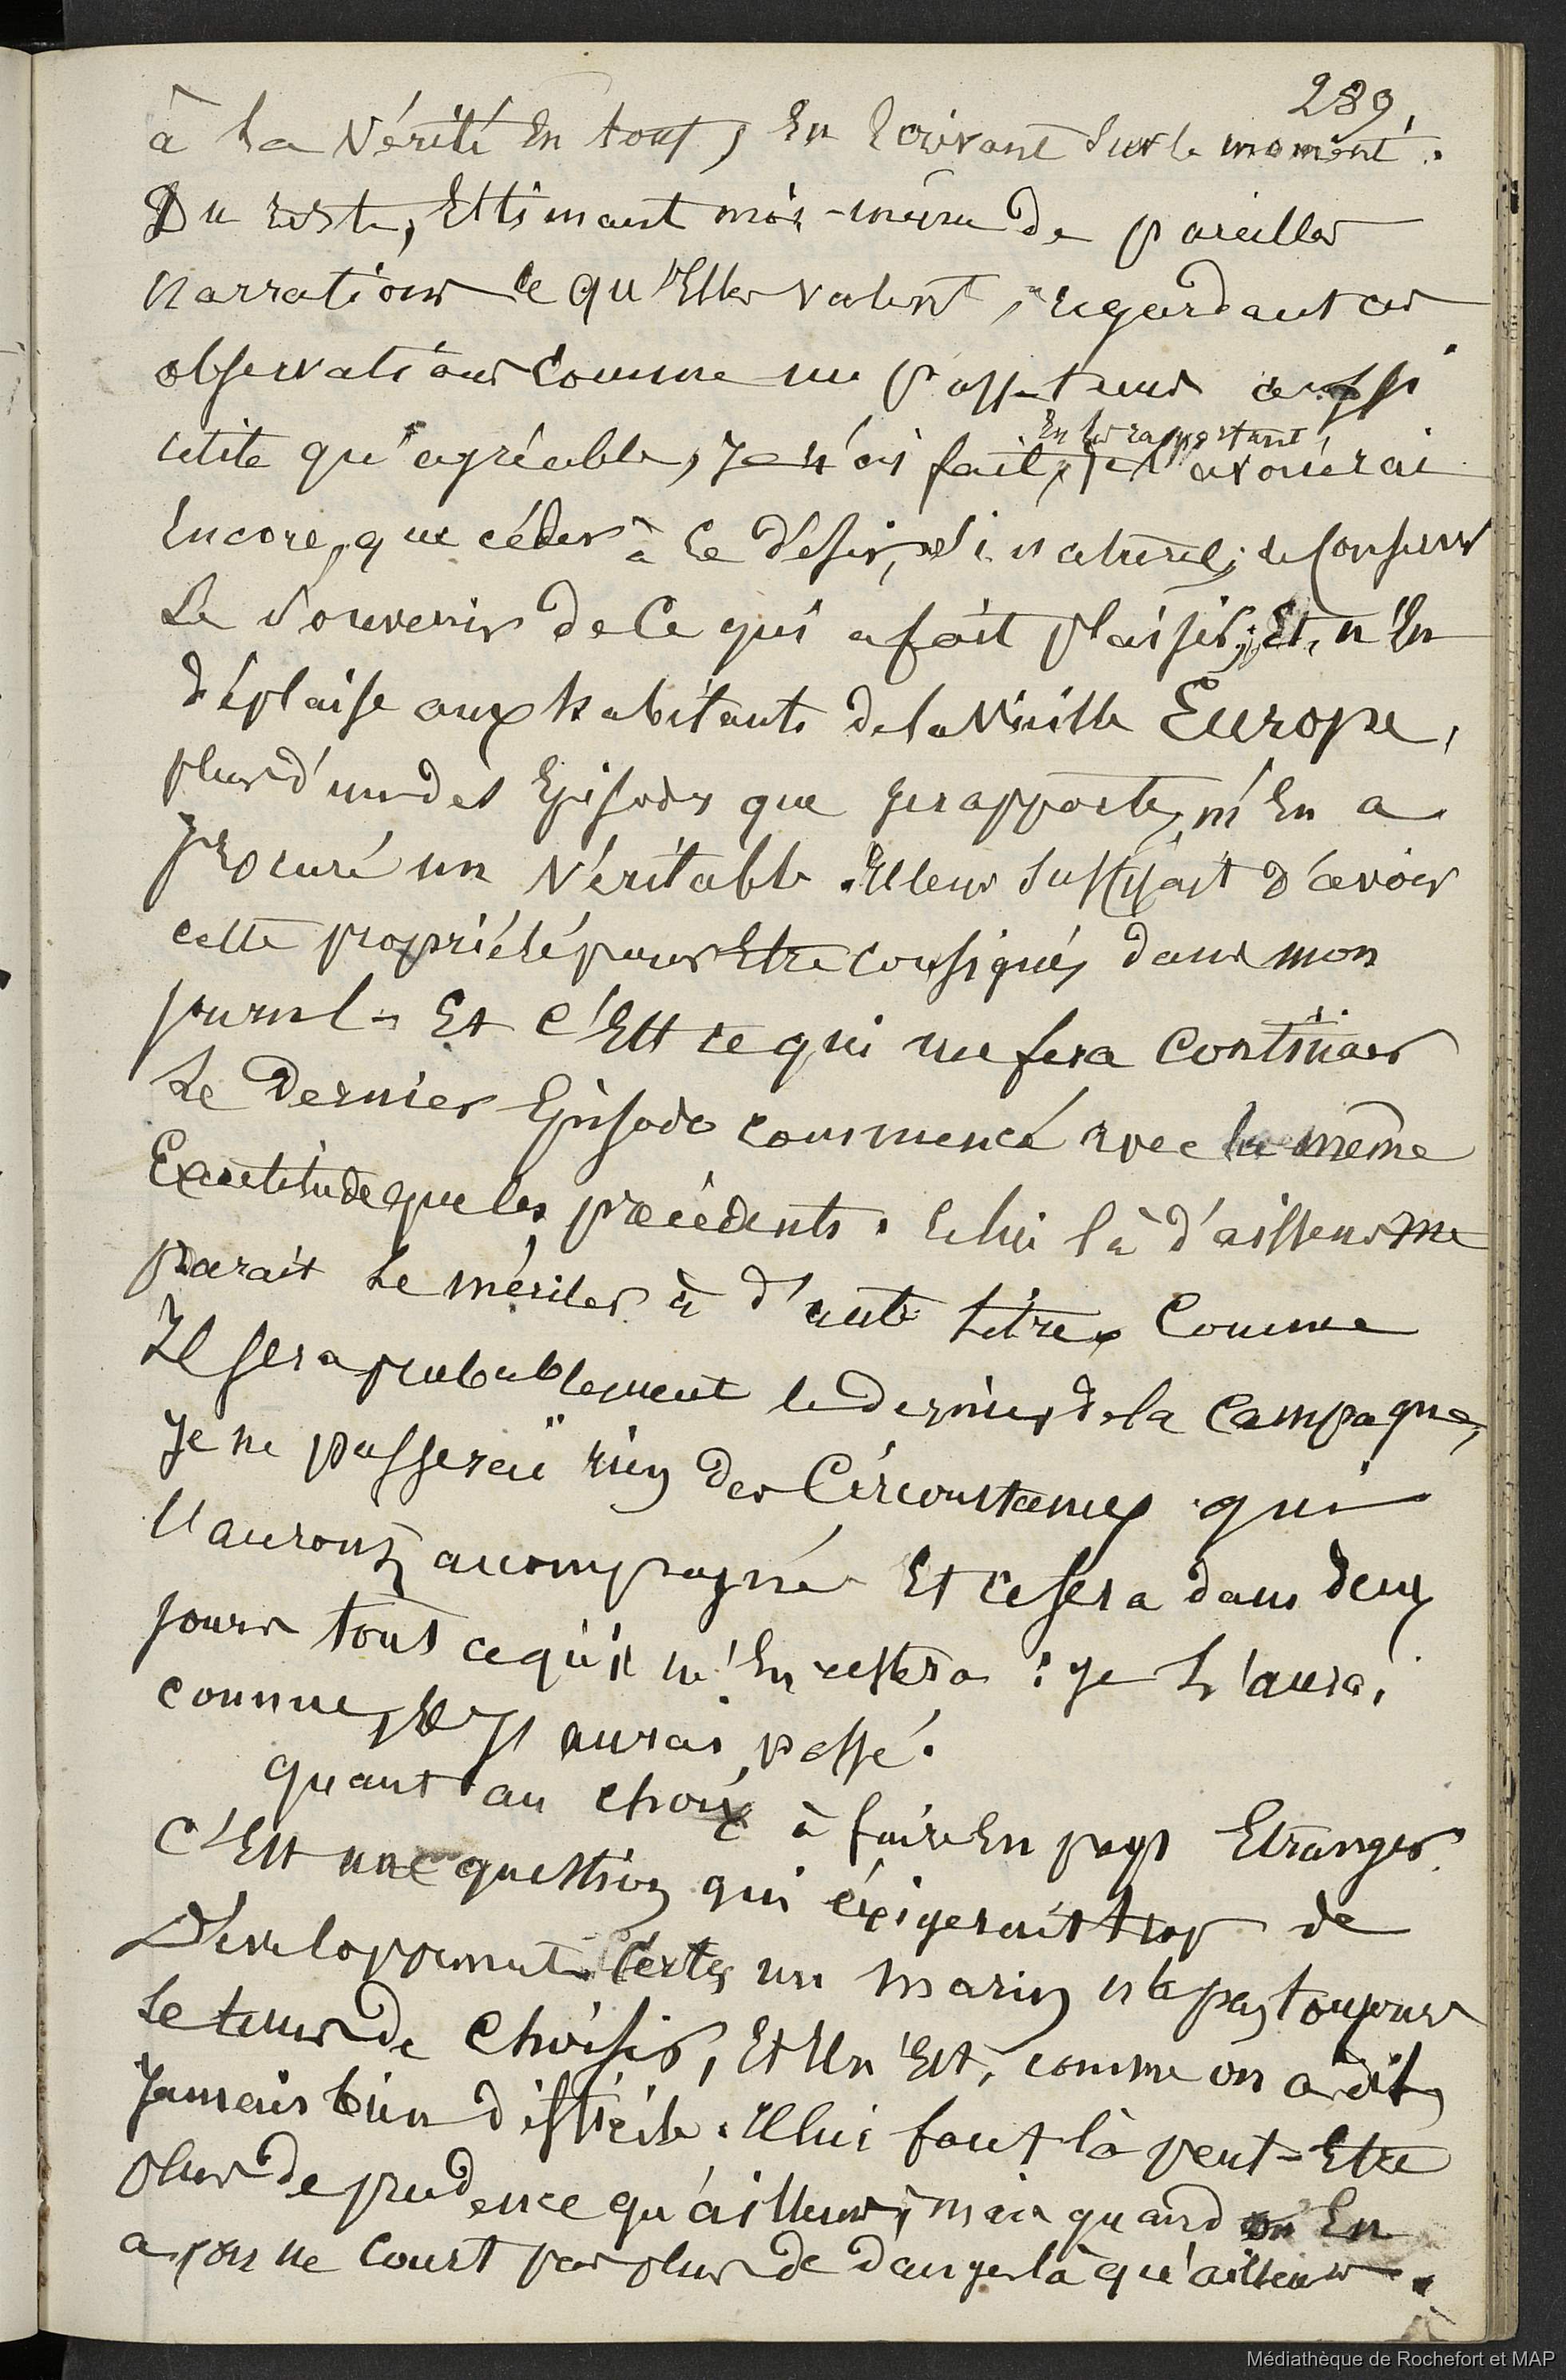 289.
à la Vérité En tout, En Ecrivant sur le moment.
Du reste, Estimant moi-même de pareilles
narrations ce qu'Elles valent, regardant ces
observations comme un passe-tems aussi
utile qu'agréable, Je n'ai fait, En les rapportant, je l'avouerai
Encore, que céder à ce désir, si naturel, de Conserver
Le Souvenir de Ce qui a fait plaisir; Et, n'En
déplaise aux habitants de la Vieille Europe,
plus d'un des Episodes que je rapporte, m'En a
procuré un Véritable. Il leur suffisait d'avoir
cette propriété pour Etre consignés dans mon
journl - Et C'Est ce qui me fera Continuer
Le Dernier Episode commencé avec la même
Exactitude que les précédents. Celui là d'ailleurs me
parait Le mériter à d'autre titres, Comme
Il sera probablement le dernier de la Campagne,
Je ne passerai rien des Circonstances qui
l'auront accompagné Et ce sera dans deux
jours tout ce qu'il m'En restera : je L'aurai
connue, j'y aurai passé.
quant au choix à faire En pays Etranger.
C'Est une question qui éxigerait trop de
Dévelopement. Certes un marin n'a pas toujours
Le tems de Choisir, Et Il n'Est, comme on a dit,
Jamais bien difficile. Il lui faut là peut-Etre
plus de prudence qu'ailleurs, mais quand on En
a, on ne Court pas plus de danger là qu'ailleurs.
Médiathèque de Rochefort et MAP